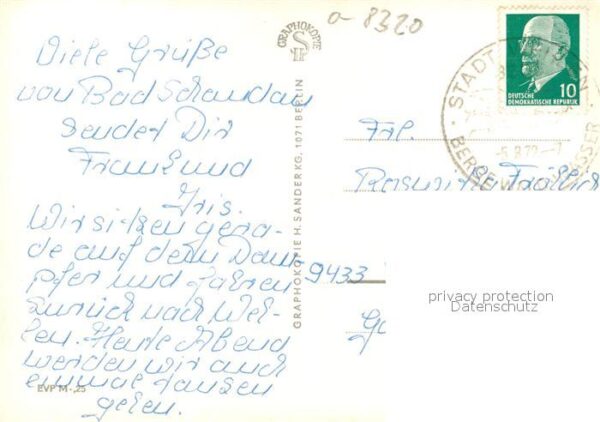 Viele Grüße
von Bad Schandau
sendet Dir
Frank und
Iris.
Wir sitzen gera-
de auf dem Dam-
pfer und fahren
zurück nach Weh-
len. Heute Abend
werden wir auch
einmal tanzen
gehen.
EVP M -,25
GRAPHOKOPIE
GRAPHOKOPIE H. SANDER KG, 1071 BERLIN
a-8320
10
DEUTSCHE
DEMOKRATISCHE REPUBLIK
STADT
BERGE WASSER
Frl.
9433
privacy protection
Datenschutz